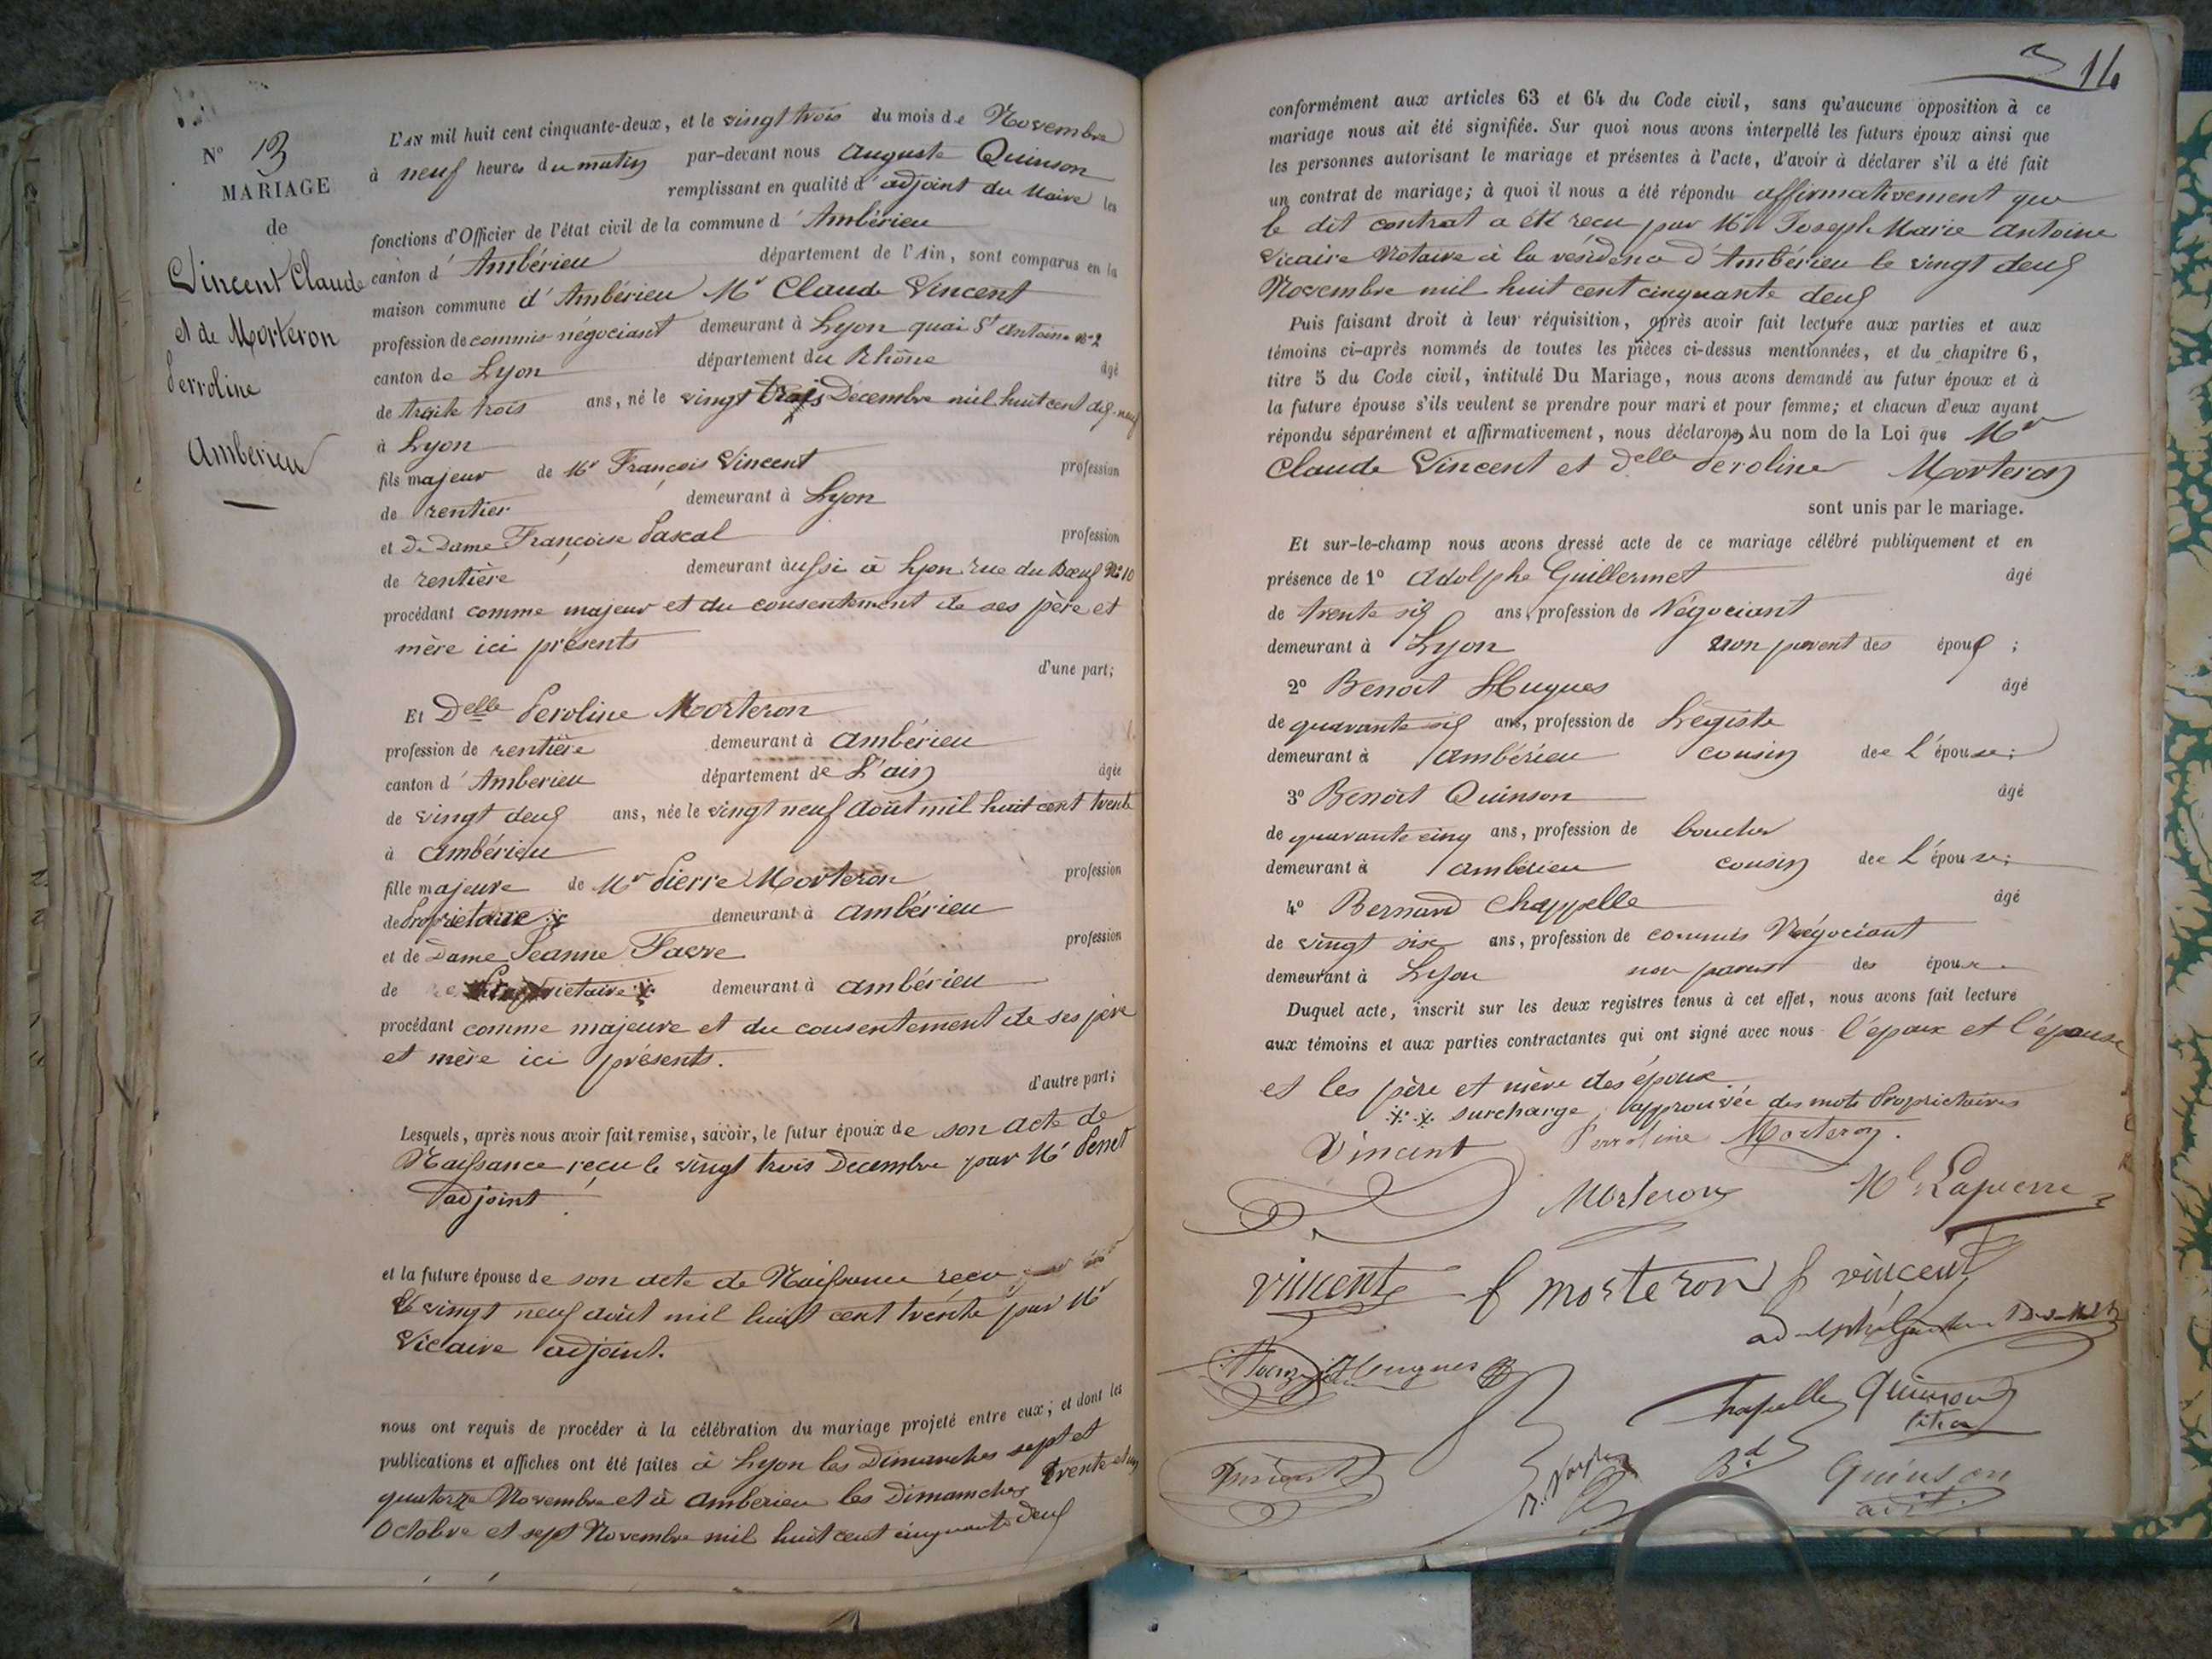 N° 13
MARIAGE
de
Vincent Claude
et de Morteron
Perroline
Ambérieu
L'AN mil huit cent cinquante-deux, et le vingt trois du mois de Novembre
à neuf heures du matin par-devant nous Auguste Quinson
remplissant en qualité d'adjoint du Maire les
fonctions d'Officier de l'état civil de la commune d'Ambérieu
canton d'Ambérieu département de l'Ain, sont comparus en la
maison commune d'Ambérieu Mr Claude Vincent
profession de commis-négociant demeurant à Lyon quai St Antoine n° 2
canton de Lyon département du Rhône âgé
de trente trois ans, né le vingt trois Décembre mil huit cent dix-neuf
à Lyon
fils majeur de Mr François Vincent profession
de rentier demeurant à Lyon
et De Dame Françoise Pascal profession
de rentière demeurant aussi à Lyon rue du Bœuf N° 10
procédant comme majeur et du consentement de ses père et
mère ici présents
d'une part;
Et Delle Peroline Morteron
profession de rentière demeurant à Ambérieu
canton d'Amberieu département de L'ain âgée
de vingt deux ans, née le vingt neuf août mil huit cent trente
à Ambérieu
fille majeure de Mr Pierre Morteron profession
de Propriétaire demeurant à Ambérieu
et de Dame Jeanne Favre profession
de Propriétaire demeurant à Ambérieu
procédant comme majeure et du consentement de ses père
et mère ici présents.
d'autre part;
Lesquels, après nous avoir fait remise, savoir, le futur époux de son acte de
Naissance reçu le vingt trois Decembre par Mr Penet
adjoint
et la future épouse de son acte de Naissance reçu
le vingt neuf août mil huit cent trente par Mr
Vicaire adjoint.
nous ont requis de procéder à la célébration du mariage projeté entre eux; et dont les
publications et affiches ont été faites à Lyon les Dimanches sept et
quatorze Novembre et à Amberieu les Dimanches trente et un
Octobre et sept Novembre mil huit cent cinquante deux
14
conformément aux articles 63 et 64 du Code civil, sans qu'aucune opposition à ce
mariage nous ait été signifiée. Sur quoi nous avons interpellé les futurs époux ainsi que
les personnes autorisant le mariage et présentes à l'acte, d'avoir à déclarer s'il a été fait
un contrat de mariage; à quoi il nous a été répondu affirmativement que
le dit contrat a été reçu par Me Joseph Marie Antoine
Vicaire Notaire à la résidence d'Ambérieu le vingt deux
Novembre mil huit cent cinquante deux
Puis faisant droit à leur réquisition, après avoir fait lecture aux parties et aux
témoins ci-après nommés de toutes les pièces ci-dessus mentionnées, et du chapitre 6,
titre 5 du Code civil, intitulé Du Mariage, nous avons demandé au futur époux et à
la future épouse s'ils veulent se prendre pour mari et pour femme; et chacun d'eux ayant
répondu séparément et affirmativement, nous déclarons, Au nom de la Loi que Mr
Claude Vincent et Delle Peroline Morteron
sont unis par le mariage.
Et sur-le-champ nous avons dressé acte de ce mariage célébré publiquement et en
présence de 1° Adolphe Guillermet âgé
de trente six ans, profession de Négociant
demeurant à Lyon non parent des époux ;
2° Benoit Hugues âgé
de quarante six ans, profession de Légiste
demeurant à Ambérieu cousin de L'épouse;
3° Benoit Quinson âgé
de quarante cinq ans, profession de boucher
demeurant à Ambérieu cousin de L'épouse;
4° Bernard Chappelle âgé
de vingt six ans, profession de commis Négociant
demeurant à Lyon non parent des époux.
Duquel acte, inscrit sur les deux registres tenus à cet effet, nous avons fait lecture
aux témoins et aux parties contractantes qui ont signé avec nous l'époux et l'épouse
et les père et mère des époux
surcharge approuvée des mots Propriétaires
Vincent Perroline Morteron.
Morteron Lapierre
Vincent f morteron f vincent
Hugues
Chapelle Quinson
Bd Quinson
adjt.